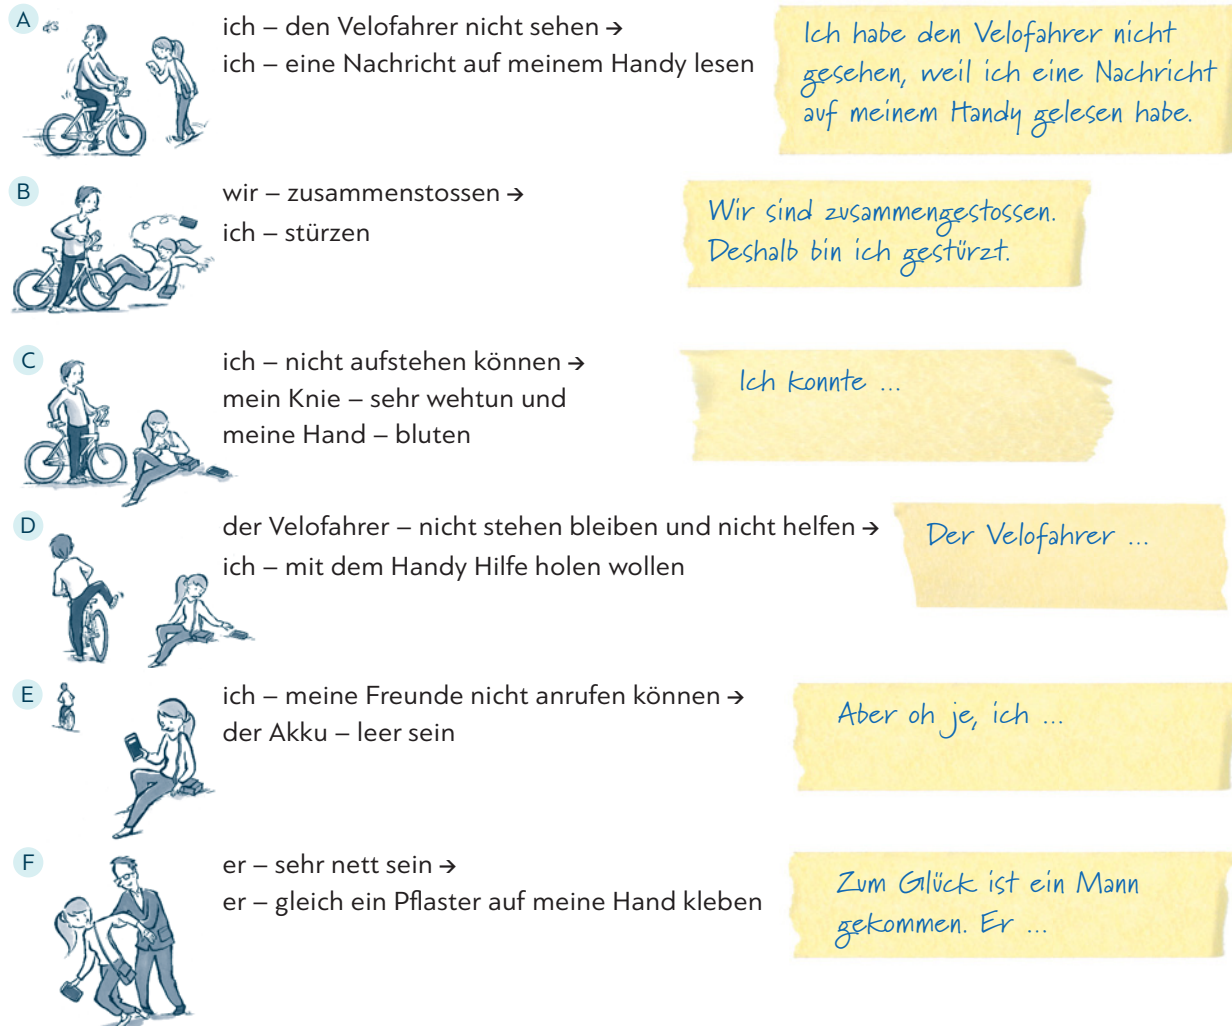 A
ich – den Velofahrer nicht sehen →
ich – eine Nachricht auf meinem Handy lesen
Ich habe den Velofahrer nicht
gesehen, weil ich eine Nachricht
auf meinem Handy gelesen habe.
B
wir – zusammenstossen →
ich – stürzen
Wir sind zusammengestossen.
Deshalb bin ich gestürzt.
C
ich – nicht aufstehen können →
mein Knie – sehr wehtun und
meine Hand – bluten
Ich konnte ...
D
der Velofahrer – nicht stehen bleiben und nicht helfen →
ich – mit dem Handy Hilfe holen wollen
Der Velofahrer ...
E
ich – meine Freunde nicht anrufen können →
der Akku – leer sein
Aber oh je, ich ...
F
er – sehr nett sein →
er – gleich ein Pflaster auf meine Hand kleben
Zum Glück ist ein Mann
gekommen. Er ...